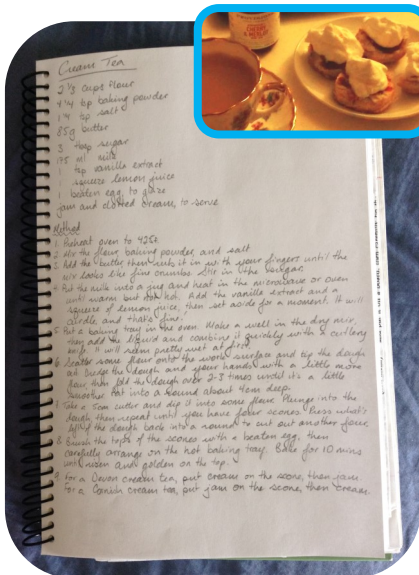 CHERRY
Cream Tea
2 1/3 cups flour
4 1/4 tsp baking powder
1/4 tsp salt
85g butter
3 tbsp sugar
175 ml milk
1 tsp vanilla extract
squeeze lemon juice
1 beaten egg, to glaze
jam and clotted cream, to serve
Method
1. Preheat oven to 425f.
2. Mix the flour, baking powder, and salt
3. Add the butter, then rub it in with your fingers until the
mix looks like fine crumbs. Stir in the sugar.
4. Put the milk into a jug and heat in the microwave or oven
until warm but not hot. Add the vanilla extract and a
squeeze of lemon juice, then set aside for a moment. It will
curdle, and that's fine.
5. Put a baking tray in the oven. Make a well in the dry mix,
then add the liquid and combine it quickly with a cutlery
knife. It will seem pretty wet at first.
6. Scatter some flour onto the work surface and tip the dough
out. Dredge the dough and your hands with a little more
flour then fold the dough over 2-3 times until it's a little
smoother. Pat into a round about 4cm deep.
7. Take a 5cm cutter and dip it into some flour. Plunge into the
dough, then repeat until you have four scones. Press what's
left of the dough back into a round to cut out another four.
8. Brush the tops of the scones with a beaten egg, then
carefully arrange on the hot baking tray. Bake for 10 mins
until risen and golden on the top.
9. For a Devon cream tea, put cream on the scone, then jam.
For a Cornish cream tea, put jam on the scone, then cream.